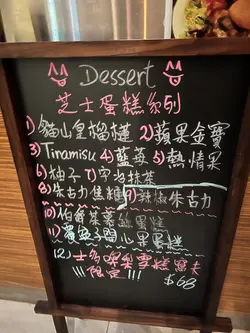 Dessert
芝士蛋糕系列
1) 貓山皇榴槤 2) 蘋果金寶
3) Tiramisu 4) 藍莓 5) 熱情果
6) 柚子 7) 宇治抹茶
8) 朱古力焦糖 9) 辣椒朱古力
10) 伯爵茶蛋糕
11) 開心果蛋糕
12) 士多啤梨雪糕窩夫
!!!限定!!! $68